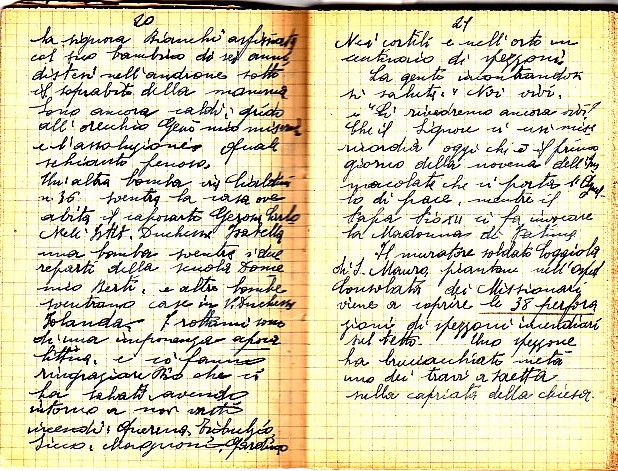 20
la signora Bianchi asfissiata
col suo bambino di sei anni
distesi nell'androne sotto
il soprabito della mamma
sono ancora caldi; grido
all'orecchio Gesù mio miseri
e l'assoluzione. Quale
schianto penoso.
Un'altra bomba, via Cialdini
n. 36. sventra la casa ove
abita il caposarto Gerson Carlo
Nell'Istit. Duchessa Isabella
una bomba sventra i due
reparti della scuola Dome
nico Berti. e altre bombe
sventrano case in V. Duchessa
Jolanda. I rottami sono
di una imponenza apoca
littica. e ci fanno
ringraziare Dio che ci
ha salvati avendo
intorno a noi vasti
incendi: Querena, Tribulzio
Sicco. Magnoni, Gardino
21
Nei cortili e nell'orto un
centinaio di spezzoni
La gente incontrandosi
si saluta: " Noi vivi.
e "Ci rivedremo ancora vivi?
Che il Signore ci usi mise
ricordia oggi che è il primo
giorno della novena dell'Im
macolata che ci porta
to di pace, mentre il
Papa Pio XII ci fa invocare
la Madonna di Fatima
Il muratore soldato Coggiola
di S. Mauro, piantone nell'Osped
Consolata dei Missionari
viene a coprire le 38 perfora
zioni di spezzoni incendiari
sul tetto. Uno spezzone
ha bruciacchiato metà
uno dei travi a saetta
sulla capriata della chiesa.